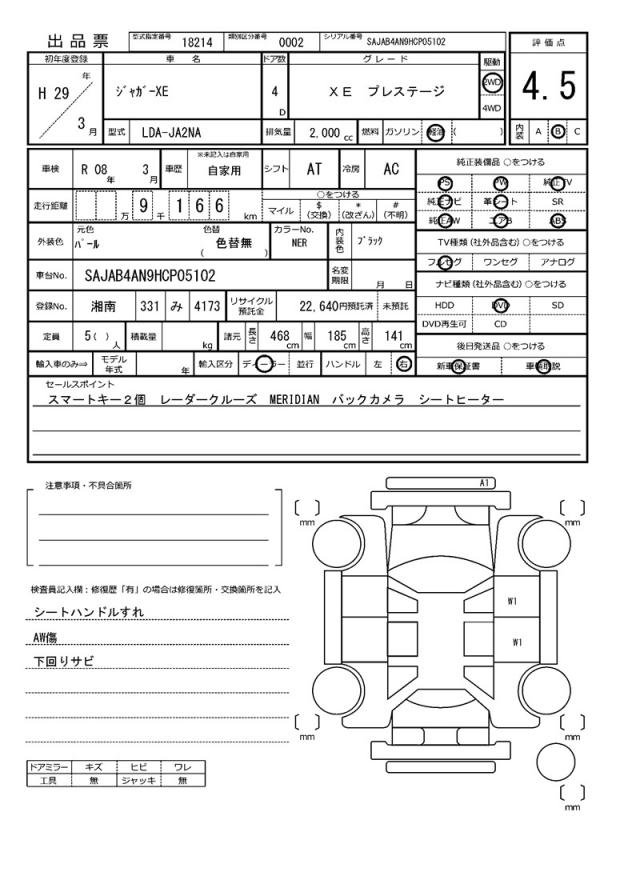 出品票 型式指定番号 18214 類別区分番号 0002 シリアル番号 SAJAB4AN9HCP05102
評価点
4.5
内装 A B C
初年度登録 車名 ドア数 グレード 駆動
H 29 年 3 月 ジャガｰXE 4 D XE プレステージ 2WD 4WD
型式 LDA-JA2NA 排気量 2,000 cc 燃料 ガソリン 軽油 ( )
車検 R 08 年 3 月 車歴 ※未記入は自家用 自家用 シフト AT 冷房 AC
走行距離 万 9 千 1 6 6 km ○をつける
マイル $(交換) *(改ざん) #(不明)
外装色 元色 パール 色替 色替無 ( ) カラーNo. NER 内装色 ブラック
車台No. SAJAB4AN9HCP05102 名変期限 月 日
登録No. 湘南 331 み 4173 リサイクル預託金 22,640円預託済 未預託
定員 5( ) 人 積載量 kg 諸元 長さ 468 cm 幅 185 cm 高さ 141 cm
輸入車のみ⇒ モデル年式 年 輸入区分 ディーラー 並行 ハンドル 左 右
純正装備品 ○をつける
PS PW 純正TV
純正ナビ 革シート SR
純正AW エアB ABS
TV種類(社外品含む)○をつける
フルセグ ワンセグ アナログ
ナビ種類(社外品含む)○をつける
HDD DVD SD
DVD再生可 CD
後日発送品 ○をつける
新車保証書 車輌取説
セールスポイント
スマートキー2個 レーダークルーズ MERIDIAN バックカメラ シートヒーター
注意事項・不具合箇所
検査員記入欄：修復歴「有」の場合は修復箇所・交換箇所を記入
シートハンドルすれ
AW傷
下回りサビ
ドアミラー キズ ヒビ ワレ
工具 無 ジャッキ 無
A1
mm
mm
W1
W1
mm
mm
mm